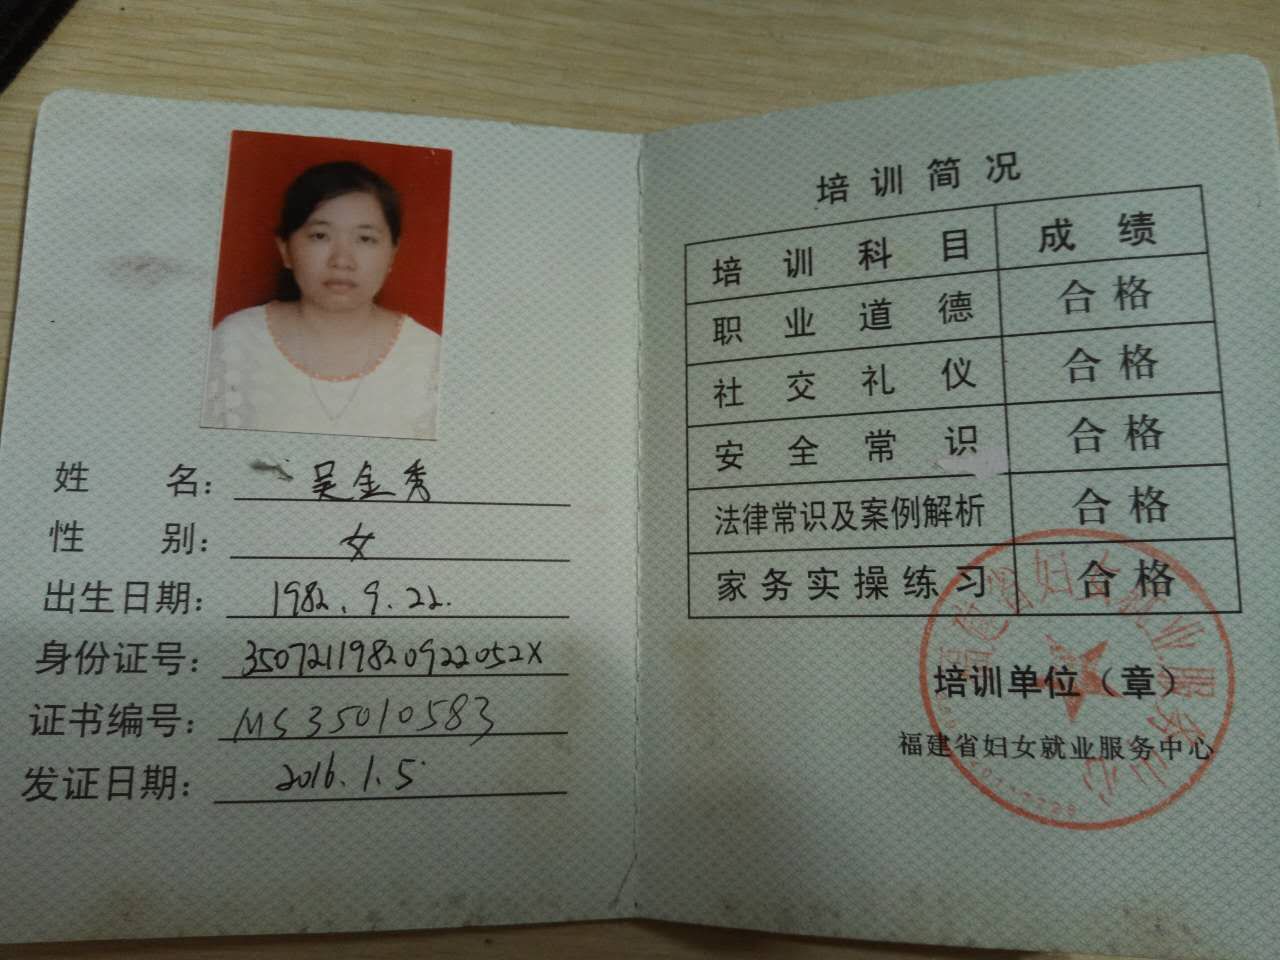 姓名：吴金秀
性别：女
出生日期：1982.9.22.
身份证号：35072119820922052X
证书编号：MS35010583
发证日期：2016.1.5
培训简况
培训科目 成绩
职业道德 合格
社交礼仪 合格
安全常识 合格
法律常识及案例解析 合格
家务实操练习 合格
培训单位（章）
福建省妇女就业服务中心
福建省妇女就业服务中心